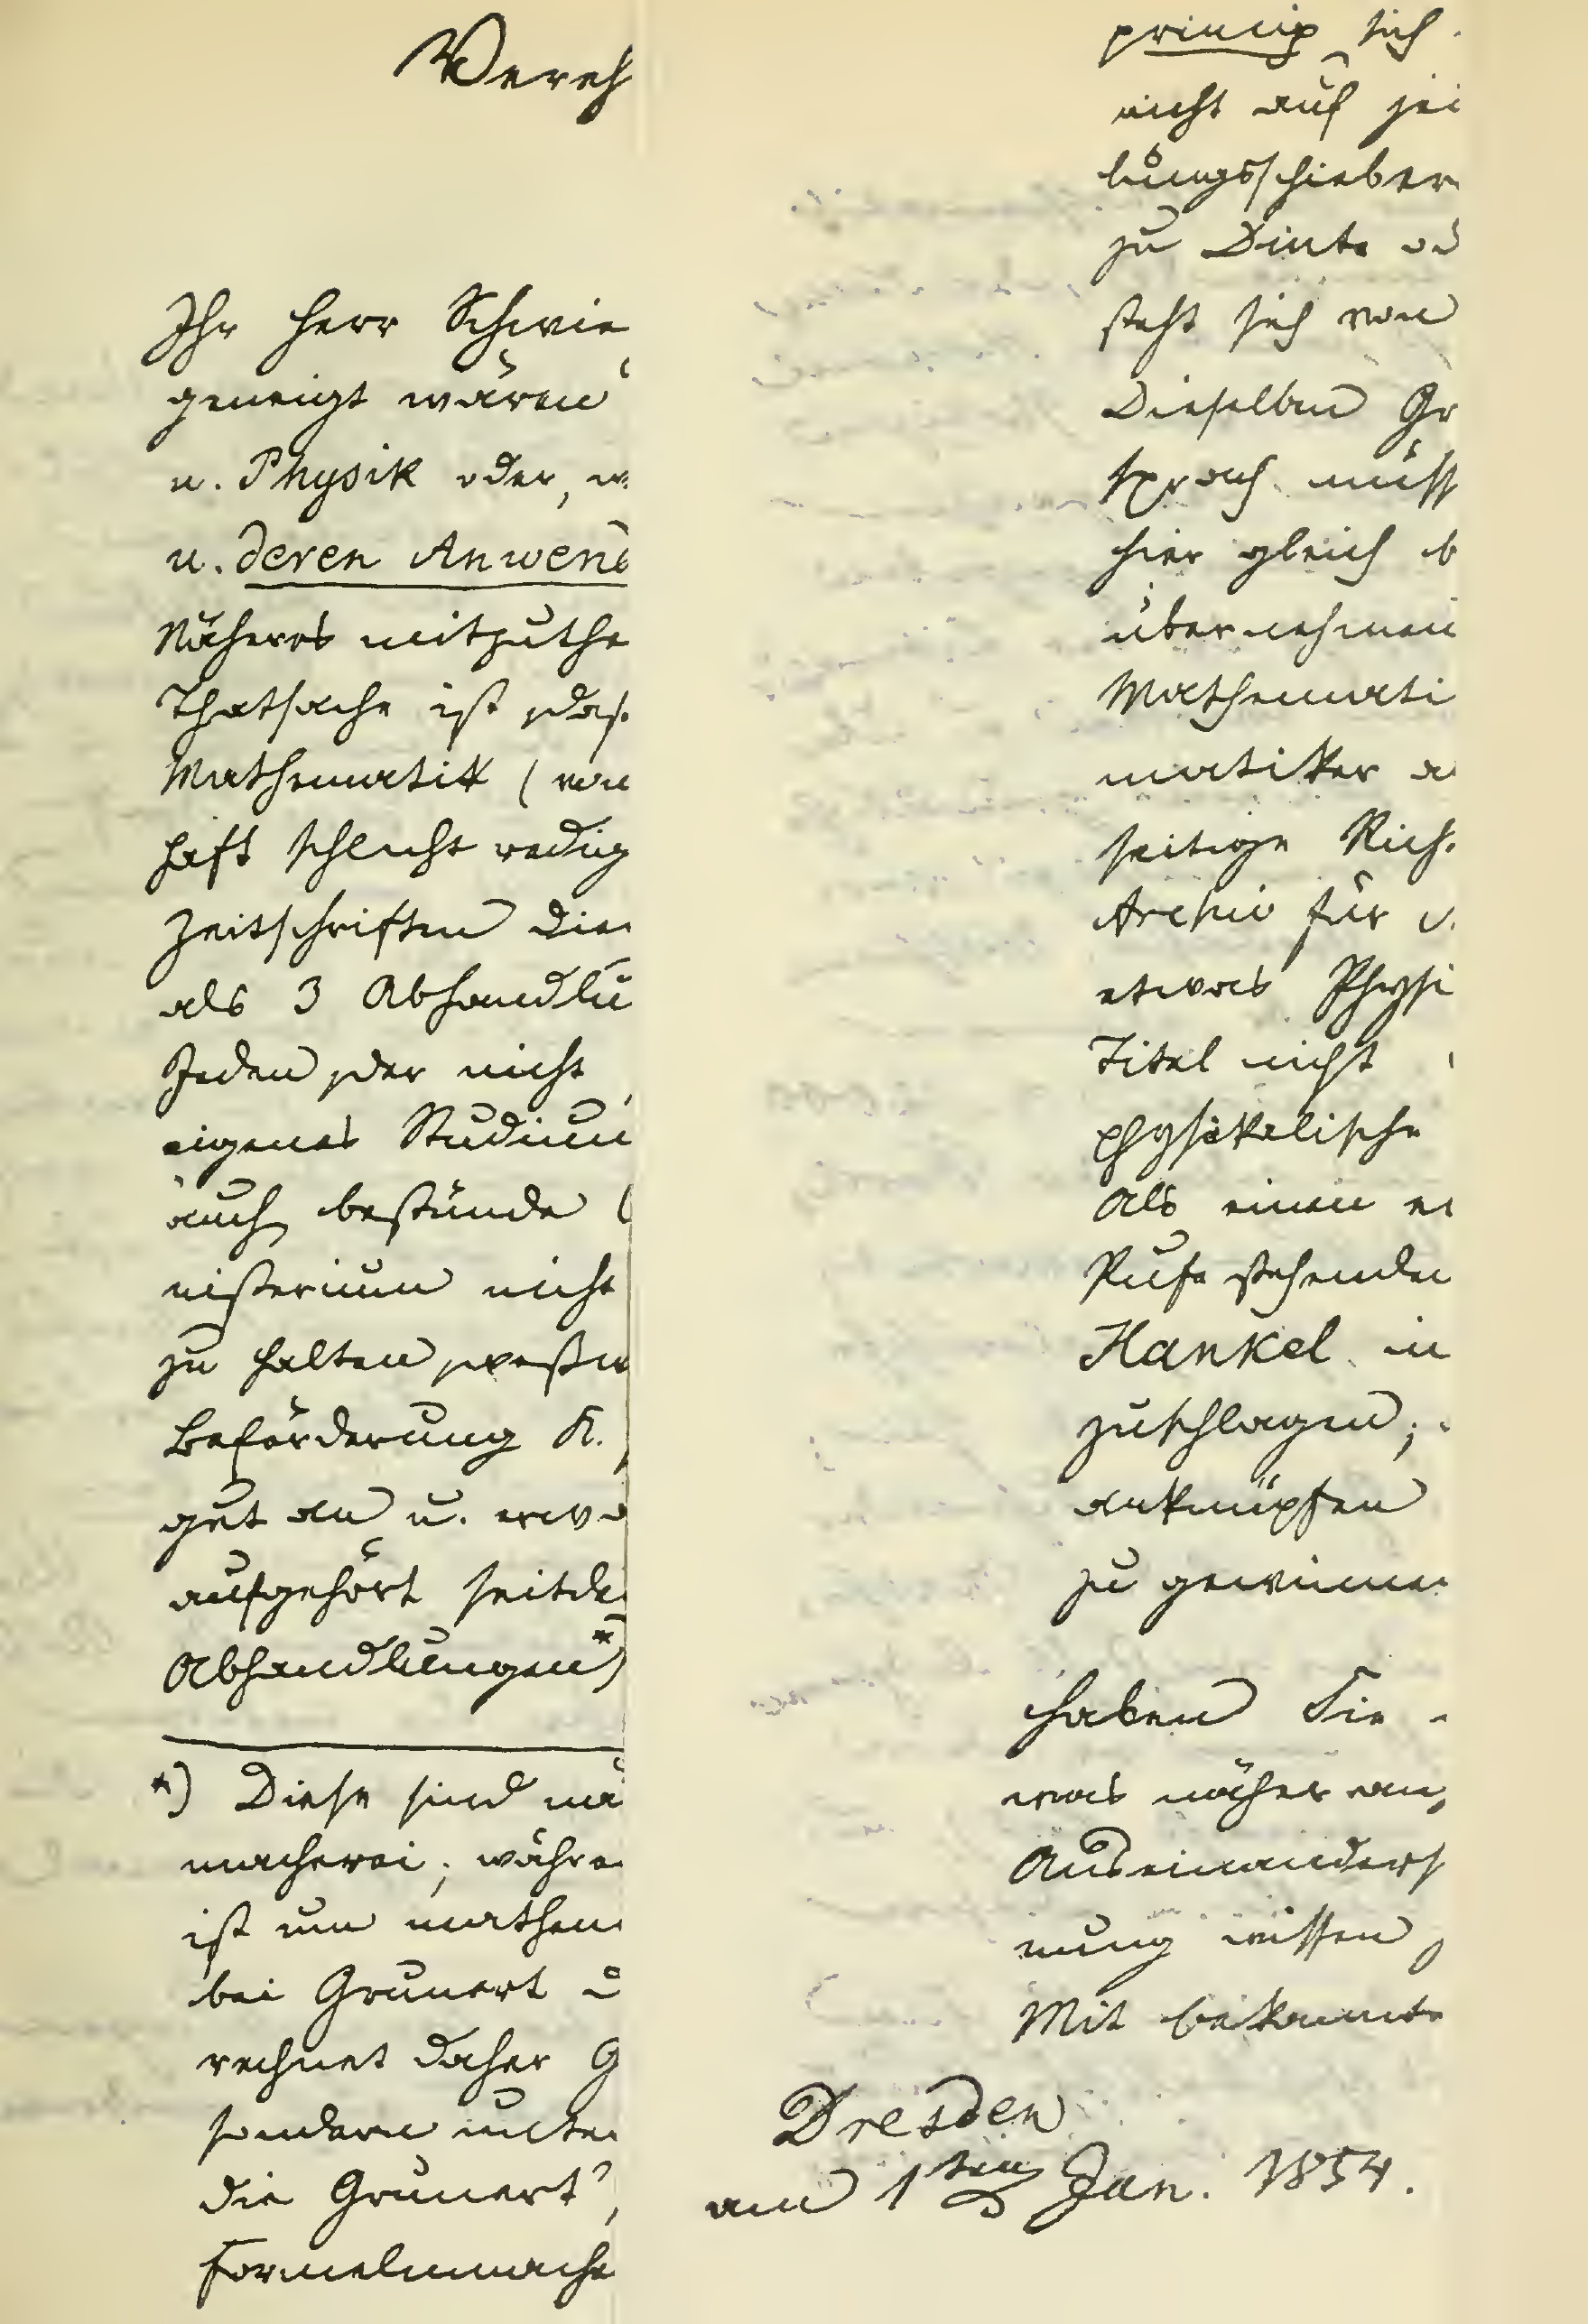 Vereh
Ihr Herr Schwie
geneigt wären
u. Physik oder, w
u. deren Anwend
Näheres mitzuthe
Thatsache ist, das
Mathematik (von
haft schlecht redig
Zeitschriften die
als 3 Abhandlu
Jeden, der nicht
eigenes Studium
auch bestünde (
nisterium nicht
zu halten, weßw
Beförderung K.
gut an u. erwo
aufgehört seitde
Abhandlungen*)
*) Diese sind
macherei; währe
ist um mathem
bei Grunert
rechnet daher G
sondern unter
die Grunert'
Formelmache
princip, sich
nicht auf
lungsschieber
zu Dinte od
steht sich von
Dieselben Gr
sprach müss
hier gleich b
übernehmen
Mathemati
matiker a
seitige Rich
Archiv für
etwas Physi
Titel nicht
physikalische
Als einen
Rufe stehenden
Hankel in
zuschlagen;
anknüpfen
zu gewinnen
haben Sie
was näher an,
Auseinanders
nung wissen,
Mit bekannte
Dresden
am 1ten Jan. 1854.